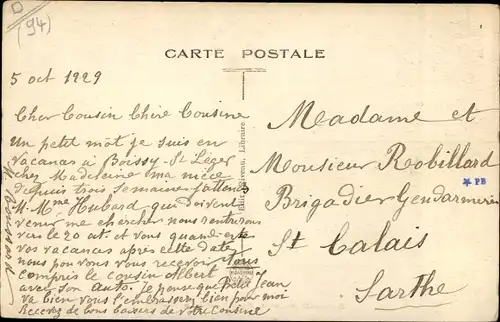 (94)
CARTE POSTALE
5 oct 1929
Cher Cousin Chère Cousine
Un petit mot je suis en
vacanas à Boissy-St Léger
chez Madeleine ma nièce
depuis trois semaines j'attends
M. Mme Hubard que doivent
venir me chercher nous rentrerons
vers le 20 oct. et vous quand este
vos vacanas après cette date
nous pourons vous recevoir tous
compris le cousin Albert
avec son auto. Je pense que petit Jean
va bien vous l'embrasserez bien pour moi
Recevez de bons baisers de votre Cousine
Libraire
Madame et
Monsieur Robillard
Brigadier Gendarmerie
St Calais
Sarthe
PB